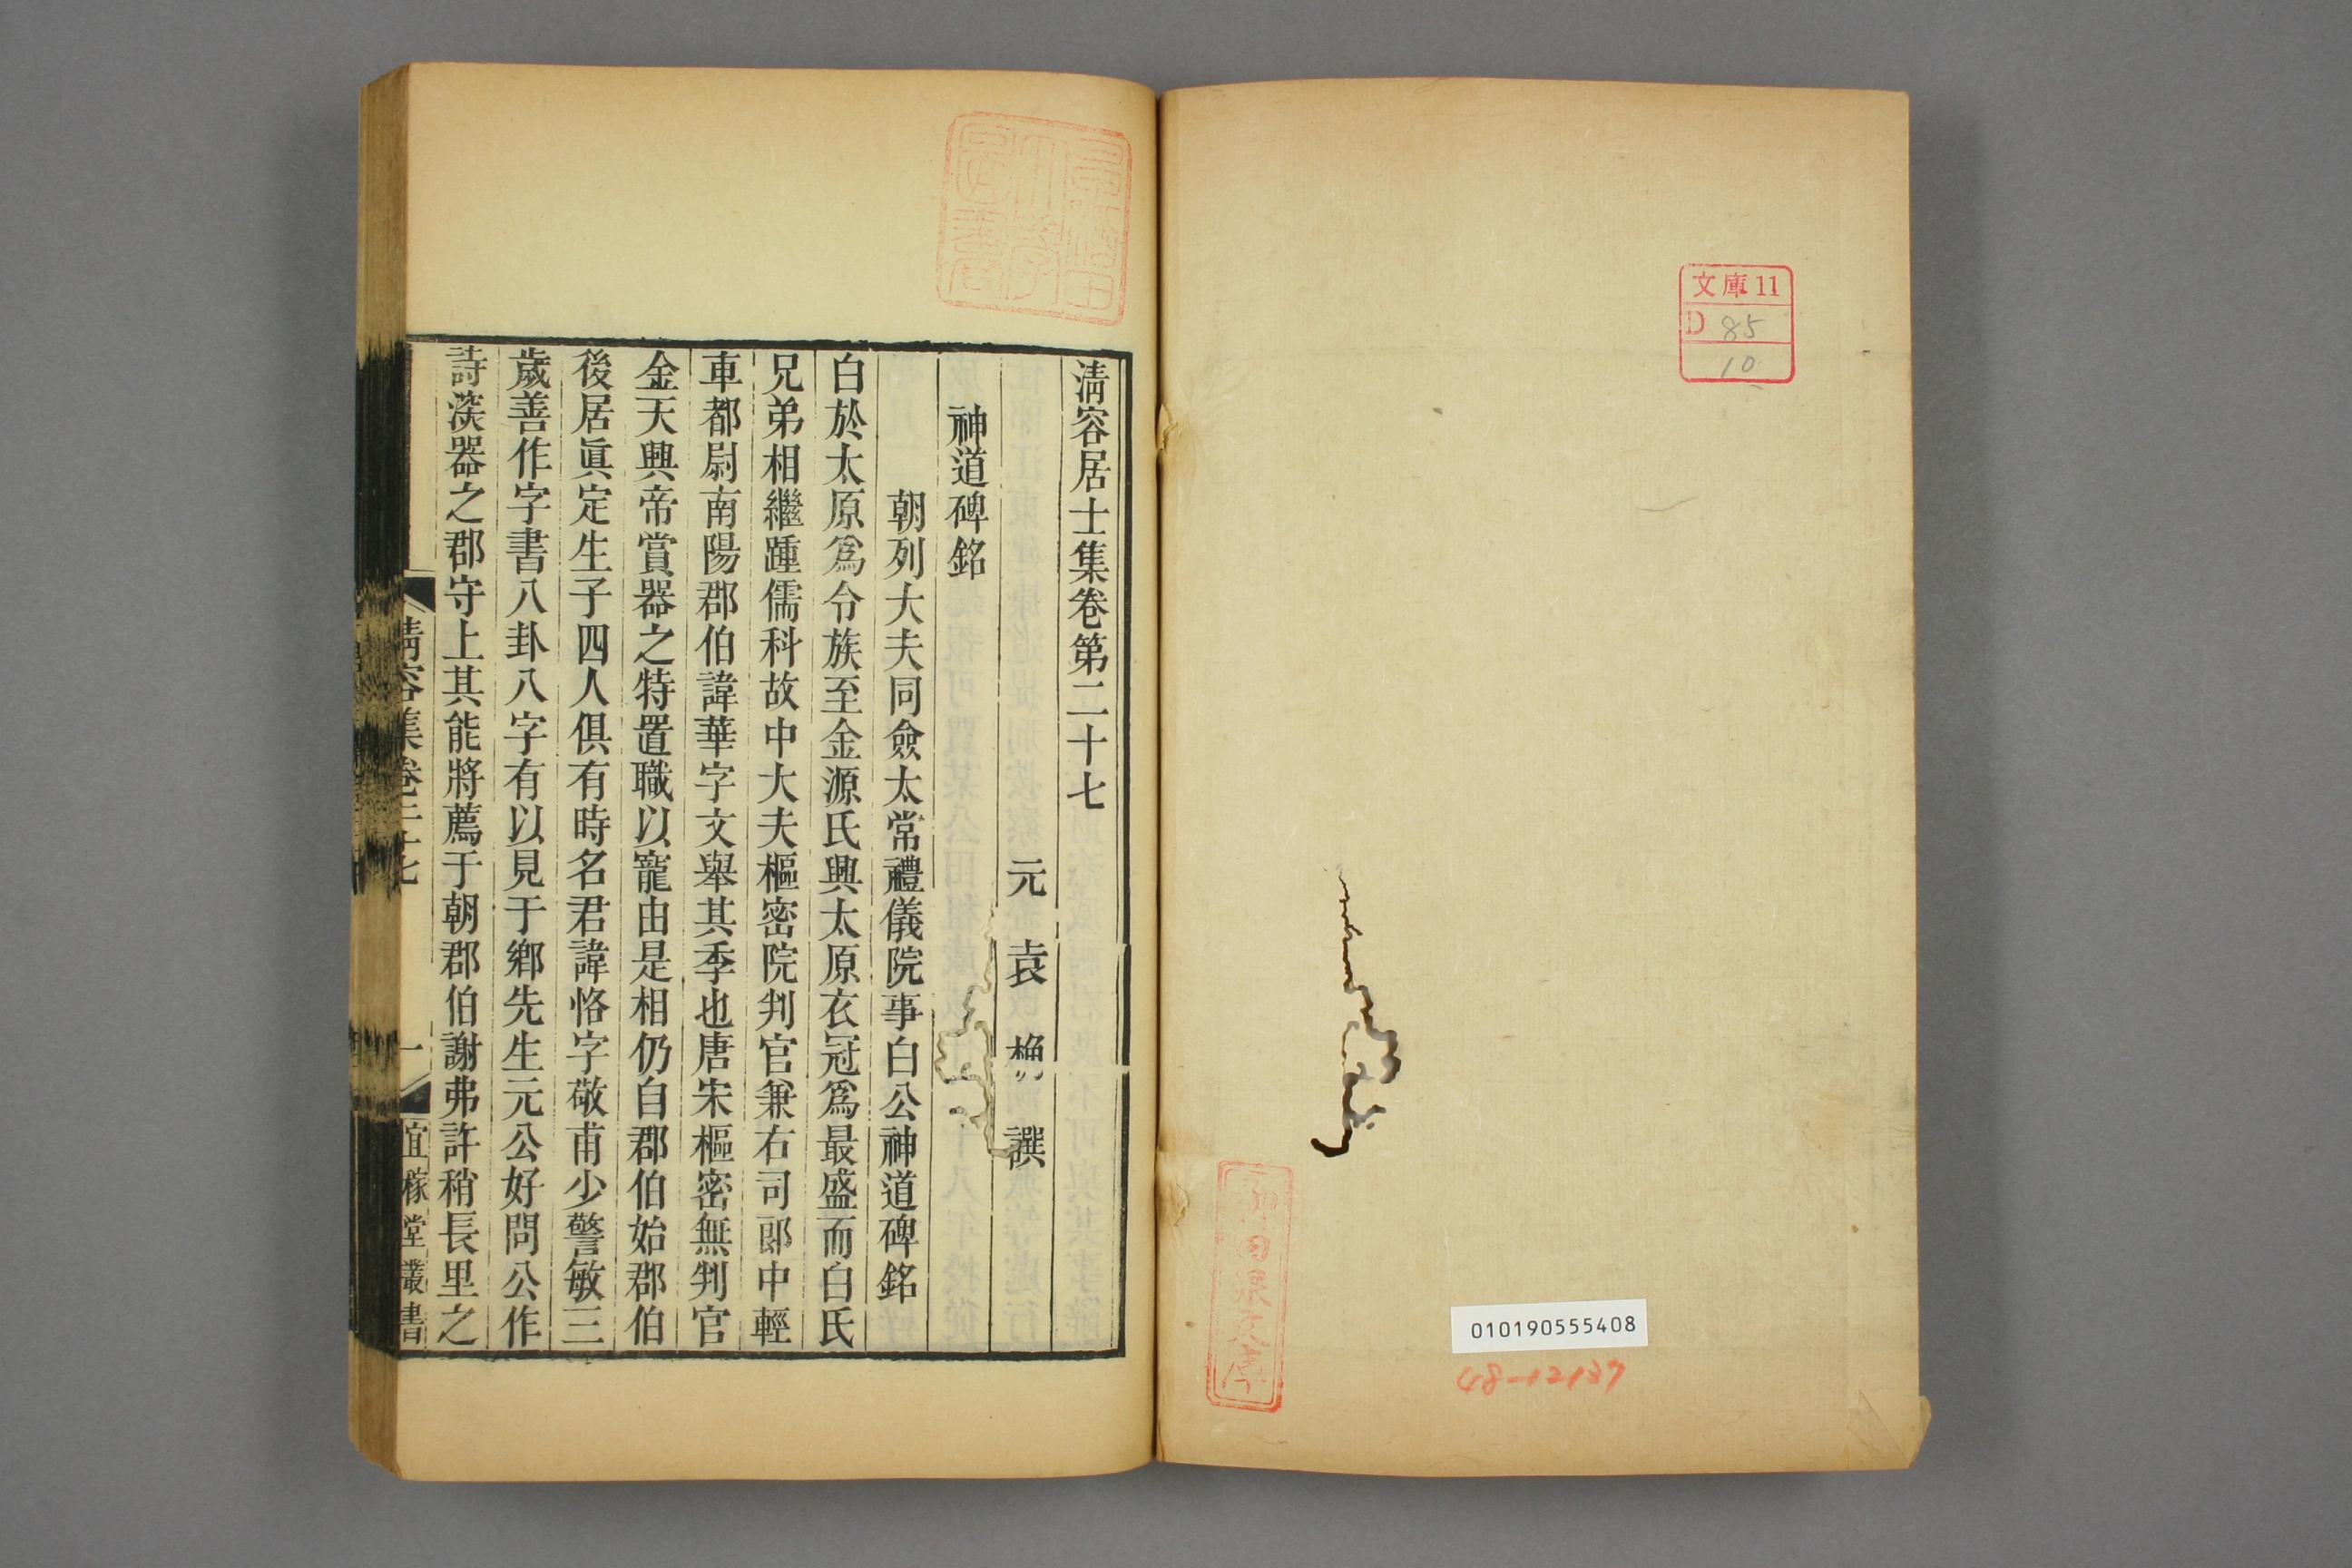 文庫11
D 85
10
010190555408
48-12137
清容居士集卷第二十七
元 袁 桷 譔
神道碑銘
朝列大夫同僉太常禮儀院事白公神道碑銘
白於太原爲令族至金源氏興太原衣冠爲最盛而白氏
兄弟相繼踵儒科故中大夫樞密院判官兼右司郎中輕
車都尉南陽郡伯諱華字文舉其季也唐宋樞密無判官
金天興帝賞器之特置職以寵由是相仍自郡伯始郡伯
後居眞定生子四人俱有時名君諱恪字敬甫少警敏三
歲善作字書八卦八字有以見于鄉先生元公好問公作
詩深器之郡守上其能將薦于朝郡伯謝弗許稍長里之
清容集卷二十七
一
宜稼堂叢書